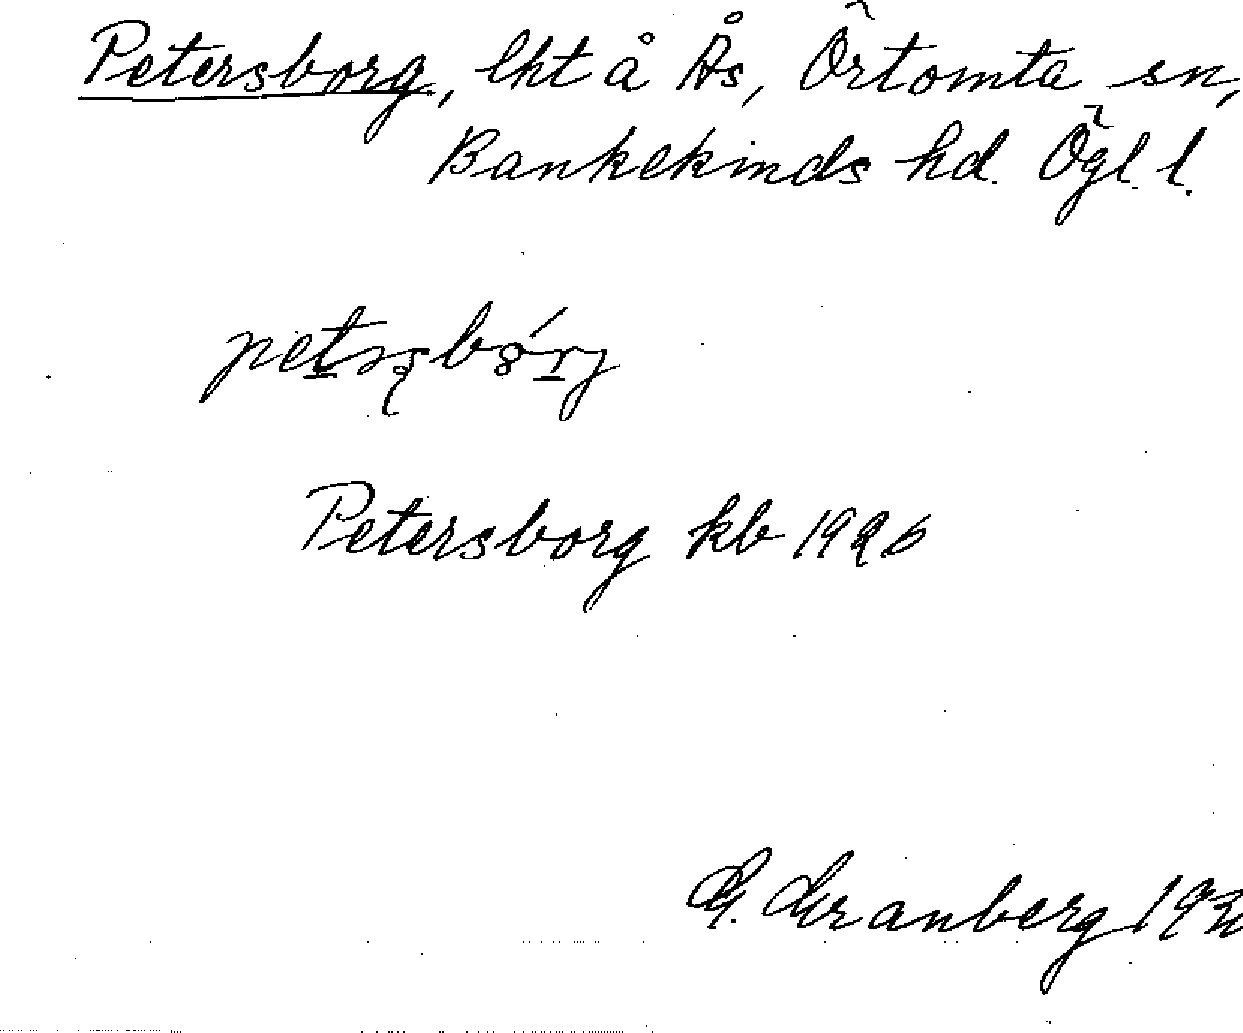 Petersborg, lht å Ås, Örtomta sn,
Bankekinds hd. Ögl. l.
Petersborg kb 1926
G. Granberg 193